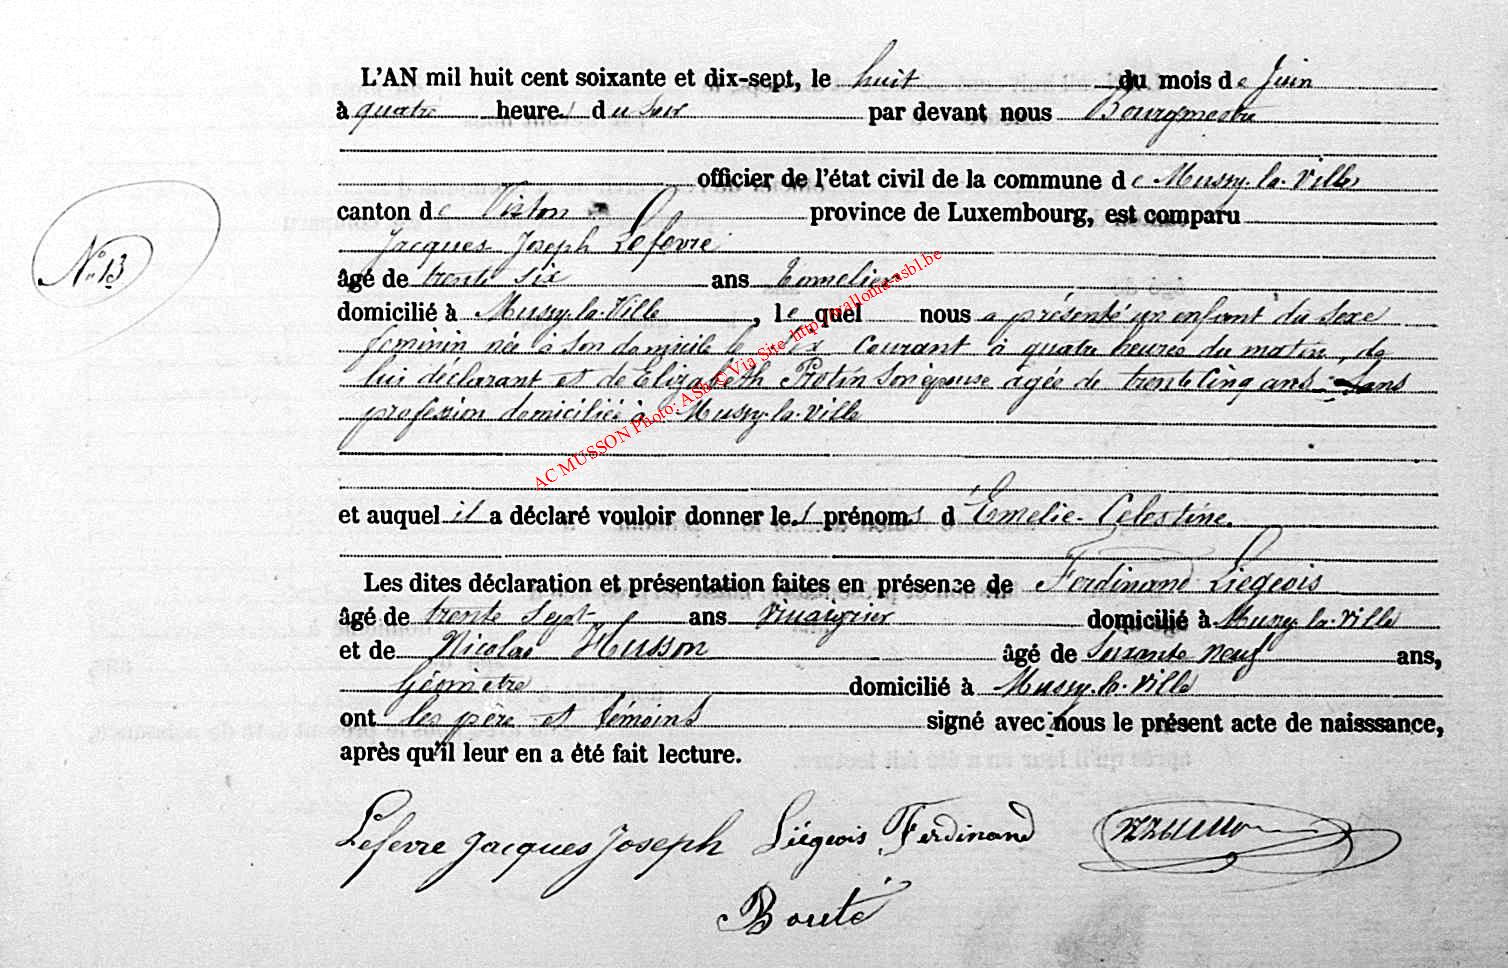 L'AN mil huit cent soixante et dix-sept, le huit du mois de Juin
à quatre heures du soir par devant nous Bourgmestre
officier de l'état civil de la commune de Mussy-la-Ville
canton de Virton province de Luxembourg, est comparu
Jacques Joseph Lefevre
N° 13
âgé de trente six ans Tonnelier
domicilié à Mussy-la-Ville, le quel nous a présenté un enfant du sexe
feminin née à son domicile le six courant à quatre heures du matin, de
lui déclarant et de Elizabeth Protin son épouse agée de trente cinq ans sans
profession domiciliée à Mussy-la-Ville
AC MUSSON Photo: ASh © Via Site http://wallonia-asbl.be
et auquel il a déclaré vouloir donner les prénoms d'Emelie-Celestine.
Les dites déclaration et présentation faites en présence de Ferdinand Liégeois
âgé de trente sept ans vinaigrier domicilié à Mussy-la-Ville
et de Nicolas Husson âgé de soixante neuf ans,
Géomètre domicilié à Mussy-la-Ville
ont les père et témoins signé avec nous le présent acte de naisssance,
après qu'il leur en a été fait lecture.
Lefevre Jacques Joseph Liégeois Ferdinand
Bouté